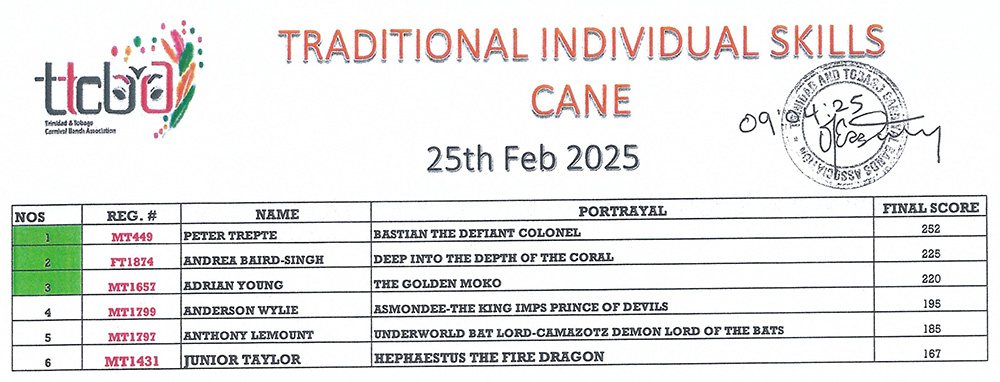 ttcba
Trinidad & Tobago
Carnival Bands Association
TRADITIONAL INDIVIDUAL SKILLS
CANE
25th Feb 2025
09 04.25
TRINIDAD AND TOBAGO CARNIVAL BANDS ASSOCIATION
NOS REG. # NAME PORTRAYAL FINAL SCORE
1 MT449 PETER TREPTE BASTIAN THE DEFIANT COLONEL 252
2 FT1874 ANDREA BAIRD-SINGH DEEP INTO THE DEPTH OF THE CORAL 225
3 MT1657 ADRIAN YOUNG THE GOLDEN MOKO 220
4 MT1799 ANDERSON WYLIE ASMONDEE-THE KING IMPS PRINCE OF DEVILS 195
5 MT1797 ANTHONY LEMOUNT UNDERWORLD BAT LORD-CAMAZOTZ DEMON LORD OF THE BATS 185
6 MT1431 JUNIOR TAYLOR HEPHAESTUS THE FIRE DRAGON 167